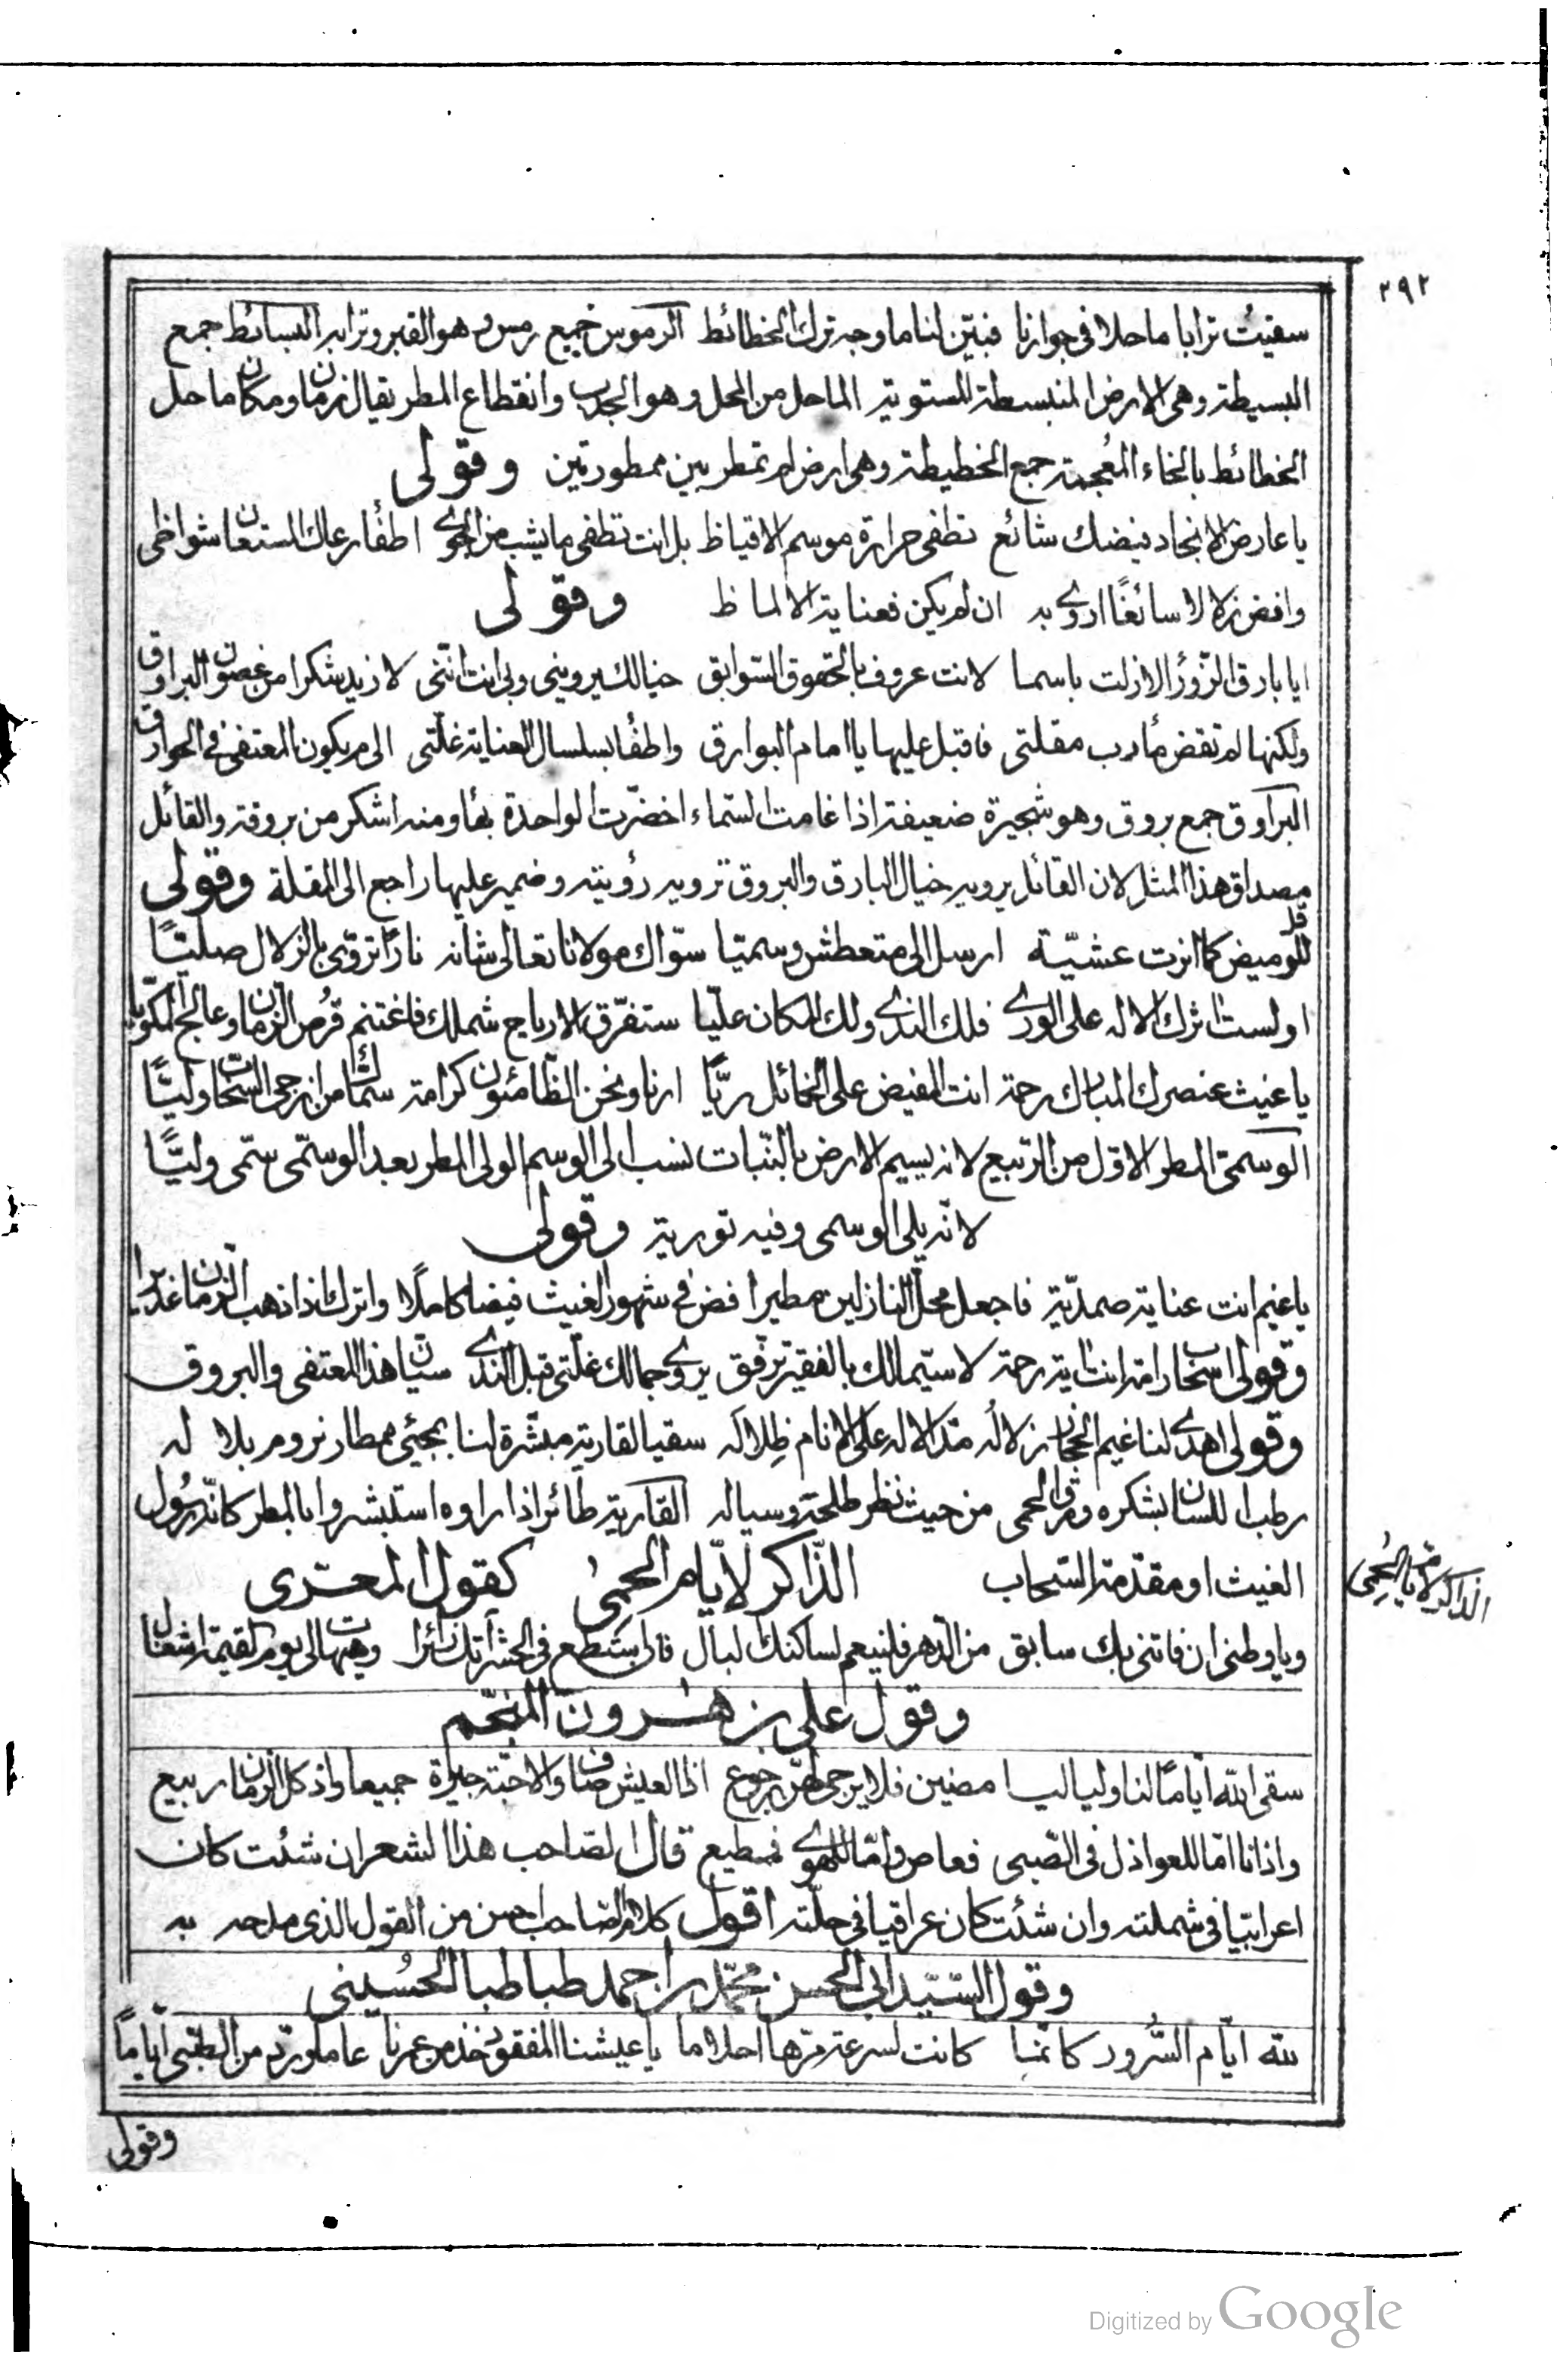 ٢٩٢
سقيت ترابا ماحلا في جوارنا فبيّن لنا ما وجه ترك الخطائط الرموس جميع رمس وهو القبر وترابه البسائط جمع
البسيطة وهي الارض المنبسطة المستوية الماحل من المحل وهو الجدب وانقطاع المطر يقال زمان ومكان ماحل
الخطائط بالخاء المعجمة جمع الخطيطة وهي ارض لم تمطر بين ممطورتين وقولى
يا عارض الانجاد فيضك شائع تطفى حرارة موسم الاقياظ بل انت تطفى ما يشب من الجوى اطفأ رعاك المستعان شواظى
وافض زلالا سائغًا اروى به ان لم يكن فعناية الالماظ وقولى
ايا بارق الزوراء لا زلت باسما لانت عروف بالحقوق السّوابق خيالك يروينى وبى انت انّنى لازيد شكرا من غصون البراوق
ولكنها لم تقض مأرب مقلتى فاقبل عليها يا امام البوارق واطفأ بسلسال العناية غلّتى الى م يكون المعتفى فى الحوارق
البراوق جمع بروق وهو شجيرة ضعيفة اذا غامت السّماء اخضرّت الواحدة بهاء ومنه اشكر من بروقة والقائل
مصداق هذا المثل لان القائل يرويه خيال البارق والبروق ترويه رؤيته وضمير عليها راجع الى المقلة وقولى
قل للوميض كما انرت عشيّة ارسل الى متعطش وسميّا سوّاك مولانا تعالى شانه نارًا تروّى بالزلال صليّا
اولست اثرك الاله على الورى فلك الندى ولك المكان عليّا ستفرّق الارياح شملك فاغتنم فرص الزمان وعالج المكويّا
يا غيث عنصرك المبارك رحمة انت المفيض على الخمائل ريّا ارنا ونحن الظّامئون كرامة سمّاك من ازجى السّحاب وليّا
الوسمىّ المطر الاوّل من الرّبيع لانه يسيم الارض بالنّبات نسب الى الوسم الولى المطر بعد الوسمّى سمّى وليّا
لانّه يلى الوسمى وفيه تورية وقولى
يا غيم انت عناية صمديّة فاجعل محلّ النازلين مطيرا افض فى شهور الغيث فيضا كاملًا واترك اذا ذهب الزمان غديرا
وقولى اسحاب رامة انت اية رحمة لا سيّما لك بالفقير ترفّق يروى جمالك غلّتى قبل الندى سيّان هذا المعتفى والبروق
وقولى اهدى لنا غيم الحجاز زلاله مدّ الاله على الانام ظِلاله سقيا لقارية مبشّرة لنا بمجئى ممطار نروم بلاله
رطب اللسان بشكره ورق الحمى من حيث نظر طلحه وسياله القارية طائر اذا راوه استبشروا بالمطر كانّه رسُول
الغيث او مقدّمة السّحاب الذّاكر لايّام الحمىٰ كقول المعرّى
الذاكر لايّام الحِمى
ويا وطنى ان فاتنى بك سابق من الدّهر فلينعم لساكنك البال فان استطع فى الحشر اتك زائرا وهيهات لى يوم القيمة اشغال
وقول على بن هٰرون المنجّم
سقى الله ايّامًا لنا ولياليا مضين فلا يرجى لهنّ رجوع اذ العيش صاف والاحبّة جيرة جميعا واذ كل الزمان ربيع
واذ انا امّا للعواذل فى الصّبى فعاص وامّا للهوى فمطيع قال الصّاحب هذا الشعر ان شئت كان
اعرابيّا فى شملته وان شئت كان عراقيا فى حلّته اقول كلام الصّاحب احسن من القول الذى مدحه به
وقول السّيّد ابى الحسن محمّد بن احمد طباطبا الحُسينى
لله ايّام السُّرور كانّما كانت لسرعة مرّها احلاما يا عيشنا المفقود خذ من عمرنا عاما وردّ من الصّبى ايّاما
وقولى